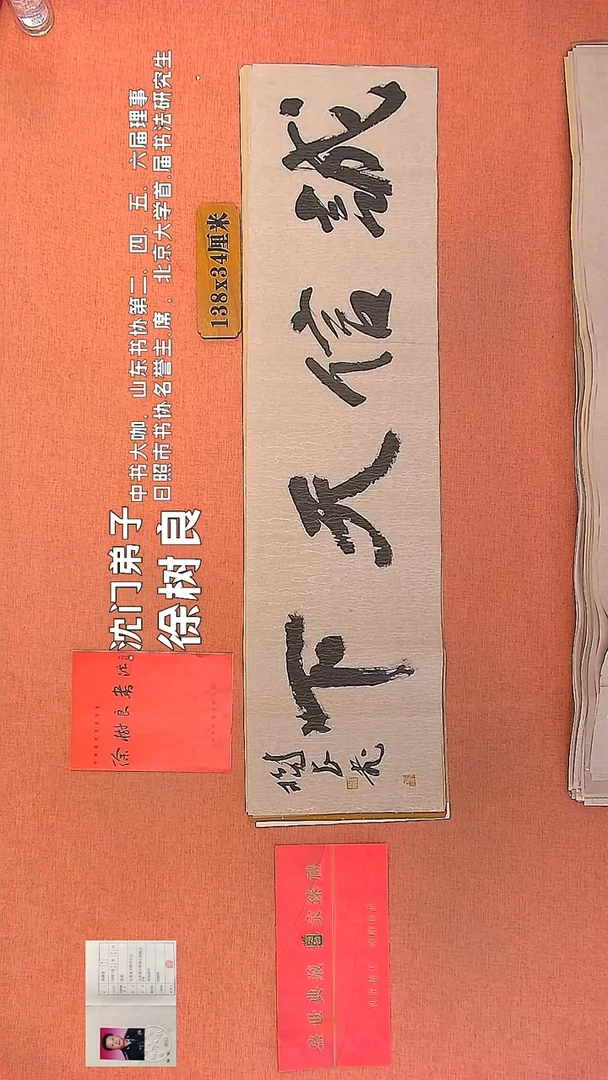 沈门弟子
徐树良
中书大咖、山东书协第二、四、五、六届理事
日照市书协名誉主席、北京大学首届书法研究生
138x34厘米
誠信天下
樹良书
徐樹良書法
盛世典藏